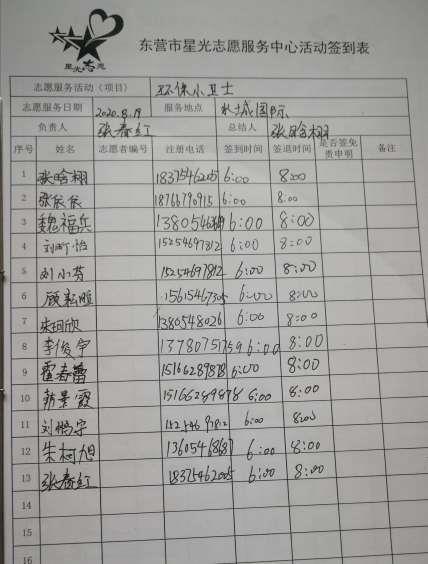 星光志愿
东营市星光志愿服务中心活动签到表
志愿服务活动（项目） 环保小卫士
志愿服务日期 2020.8.19 服务地点 水城国际
负责人 张春红 总结人 张晗栩
序号 姓名 志愿者编号 注册电话 签到时间 签退时间 是否签免责申明 备注
1 张晗栩 18375462005 6:00 8:00
2 张依依 18766790915 6:00 8:00
3 魏福兵 6:00 8:00
4 15254697812 6:00 8:00
5 刘小芬 15254697812 6:00 8:00
6 6:00 8:00
7 朱珂欣 1380548026 6:00 8:00
8 李俊宇 13780751759 6:00 8:00
9 霍春蕾 15166289878 6:00 8:00
10 韩景霞 15166289878 6:00 8:00
11 刘畅宇 15254697812 6:00 8:00
12 朱柯旭 6:00 8:00
13 张春红 18375462005 6:00 8:00
14
15
16